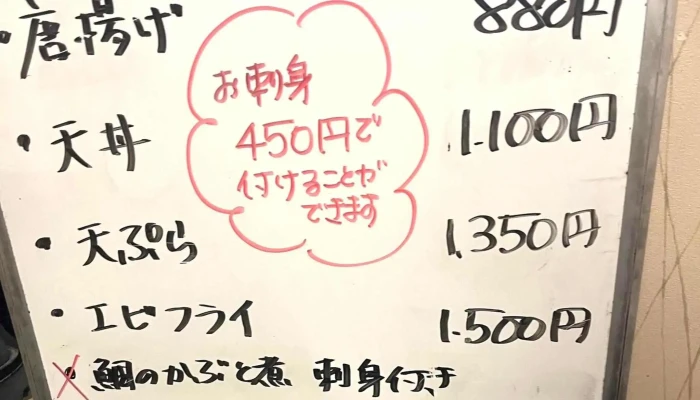 ・唐揚げ 880円
お刺身
450円で
付けることが
できます
・天丼 1.100円
・天ぷら 1,350円
・エビフライ 1.500円
×鯛のかぶと煮 刺身付き